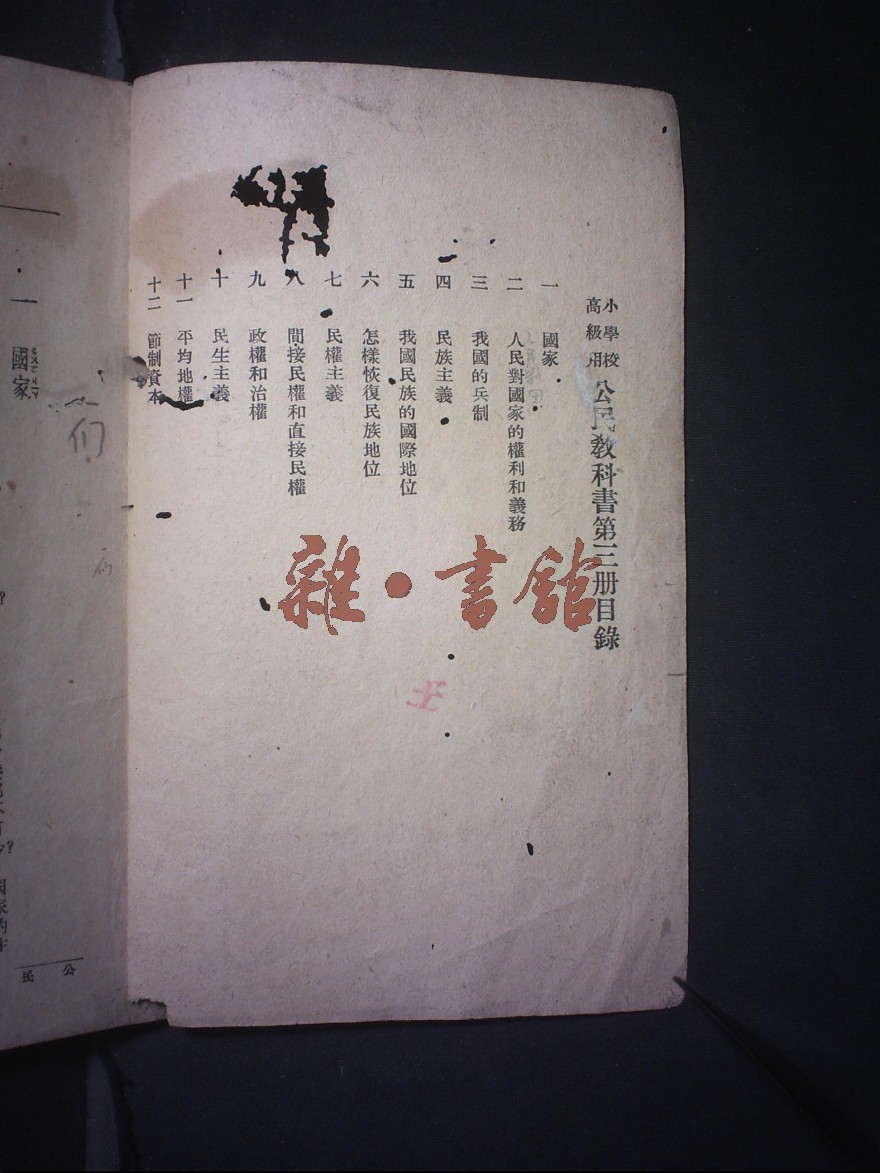 小學校
高級用
公民教科書第三册目錄
一 國家
二 人民對國家的權利和義務
三 我國的兵制
四 民族主義
五 我國民族的國際地位
六 怎樣恢復民族地位
七 民權主義
八 間接民權和直接民權
九 政權和治權
十 民生主義
十一 平均地權
十二 節制資本
雜·書館
一 國家
们
公民